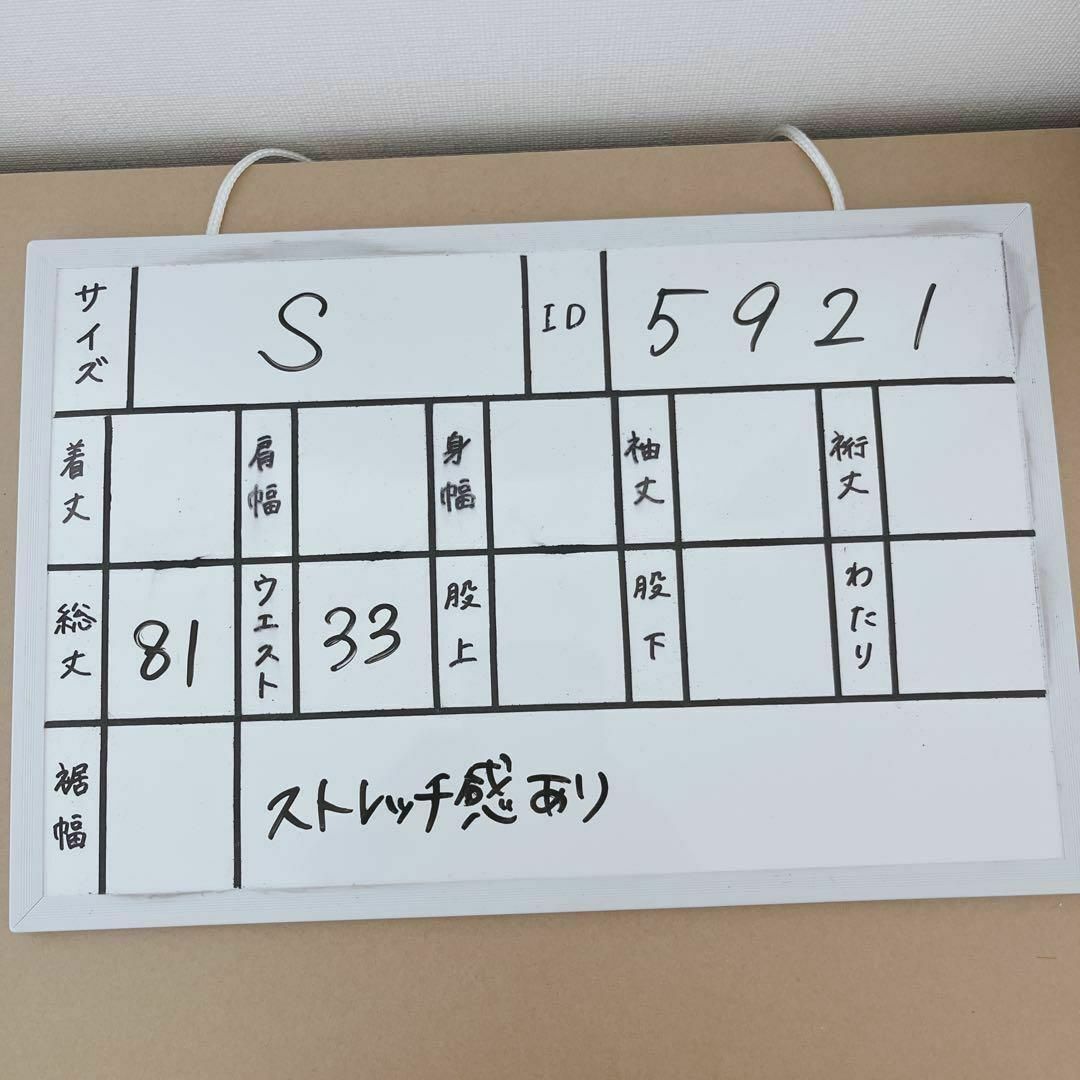 サイズ S ID 5921
着丈 肩幅 身幅 袖丈 裄丈
総丈 81 ウエスト 33 股上 股下 わたり
裾幅 ストレッチ感あり